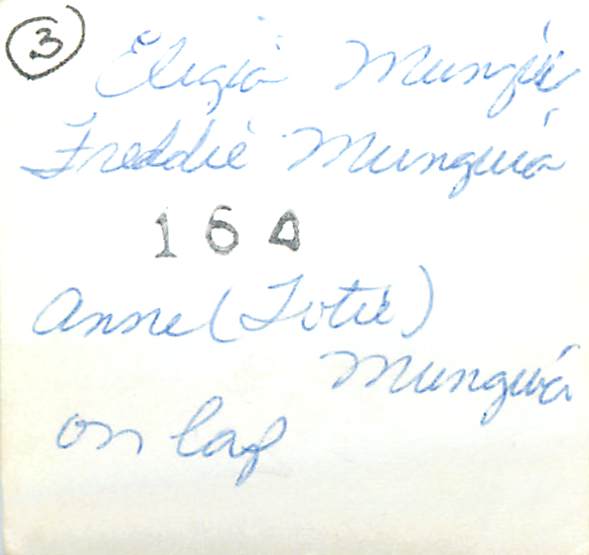 ③ Eligia Munguí
Freddie Munguía
16A
Anne (Totie)
Munguía
on lap